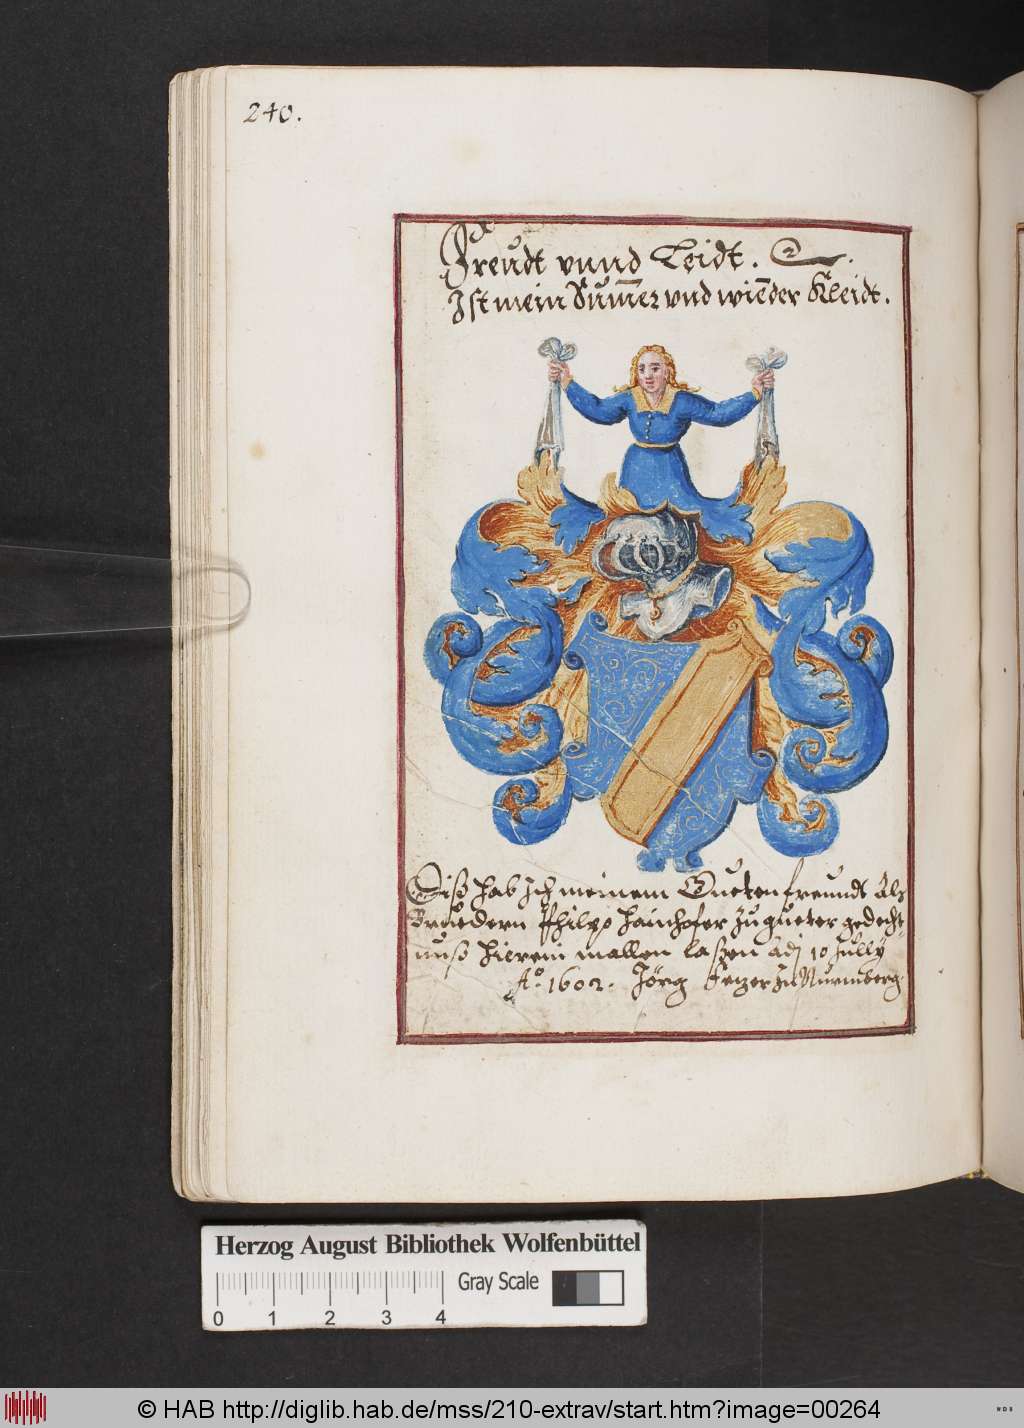 240.
Freudt vnnd Leidt.
Ist mein Sum̄er vnd win̄der Kleidt.
Diß hab Ich meinem Gueten freundt Als
Bruedern Philyo Hainhofer Zu gueter gedecht-
nuß hierein mallen laßen Adj 10 Jully
Ao. 1602. Jörg Fezer Zu Nurmberg.
Herzog August Bibliothek Wolfenbüttel
Gray Scale
0 1 2 3 4
© HAB http://diglib.hab.de/mss/210-extrav/start.htm?image=00264